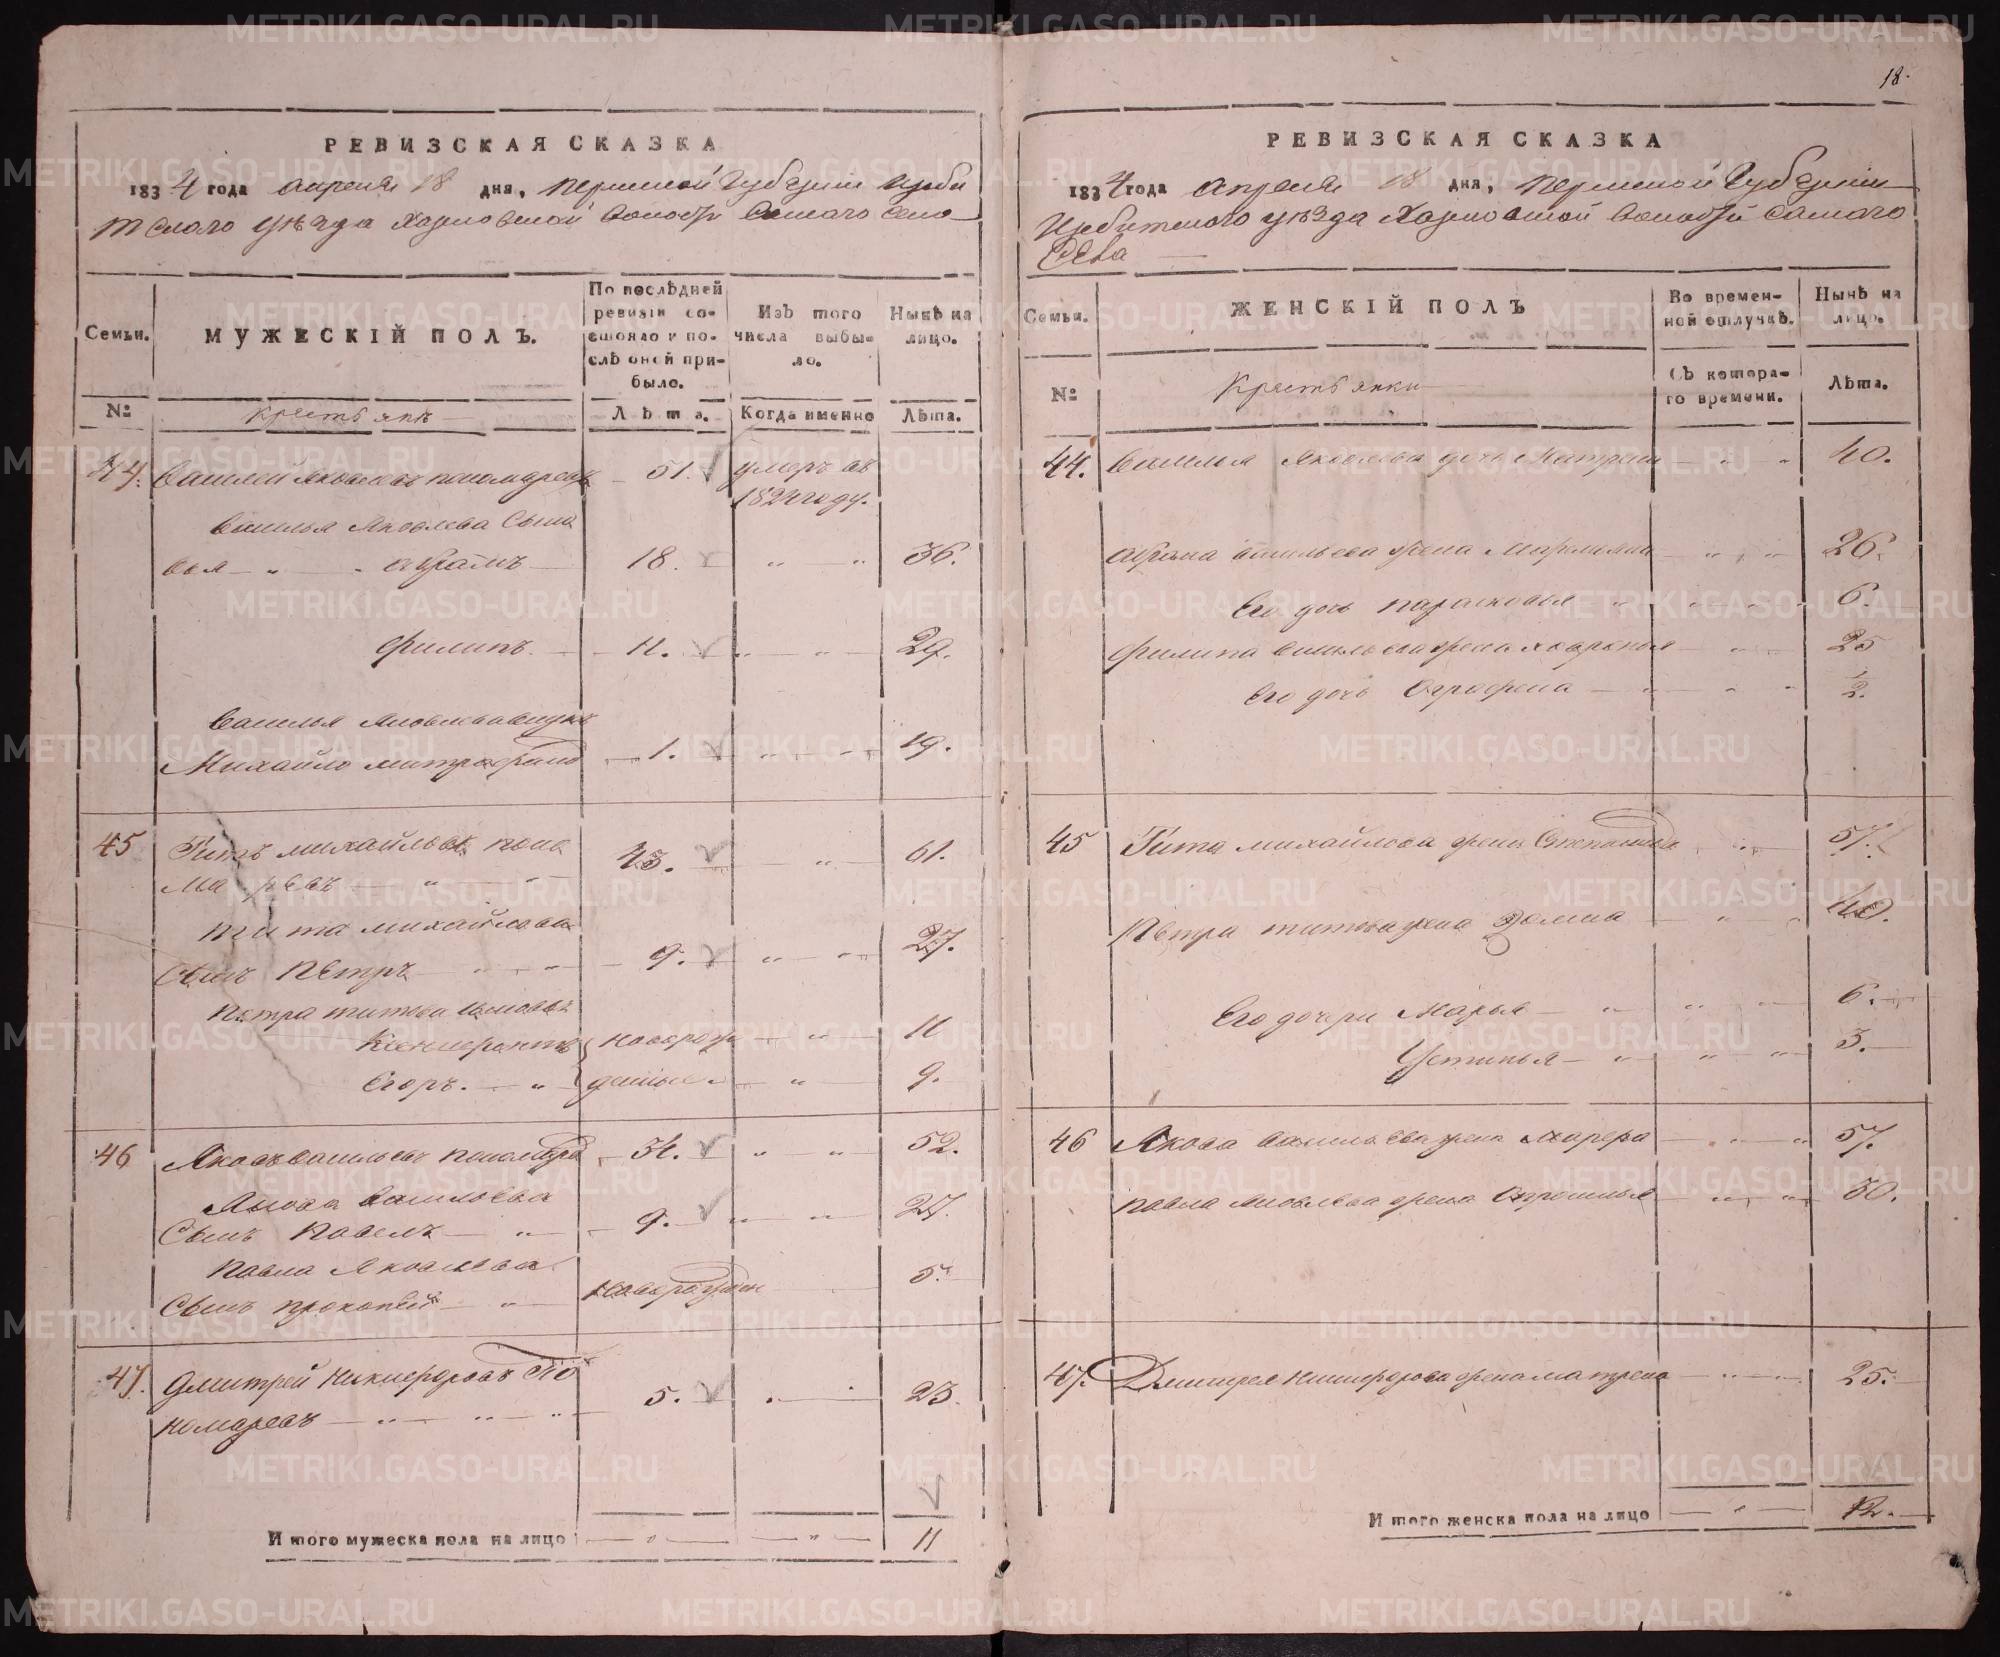 РЕВИЗСКАЯ СКАЗКА
1834 года апреля 18 дня, Пермской Губернии Ирби
тского уѣзда Харловской Волости Самаго Села
Семьи. МУЖЕСКІЙ ПОЛЪ. По послѣдней ревизіи состояло и послѣ оной прибыло. Изъ того числа выбыло. Нынѣ на лицо.
№ Крестьяне Лѣта. Когда именно Лѣта.
44. Василей Яковлевъ Пономаревъ 51. умеръ въ
1824 году.
Василья Яковлева Сыно
вья Абрамъ 18. 36.
Филипъ 11. 29.
Василья Яковлева внукъ
Михайло Митрофано 1. 19.
45 Титъ Михайловъ Поно
маревъ 43. 61.
Тита Михайлова
Сынъ Петръ 9. 27.
Петра Титова сыновья
новорож 11
Егоръ. денные 9.
46 Яковъ Васильевъ Пономарев 34. 52.
Якова Васильева
Сынъ Павелъ 9. 27.
Павла Яковлева
Сынъ Прокопей новорожден 5.
47. Дмитрей Никифоровъ По
номаревъ 5. 23.
И того мужеска пола на лицо 11
18.
РЕВИЗСКАЯ СКАЗКА
1834 года Апреля 18 дня, Пермской Губернии
Ирбитского уѣзда Харловской Волости Самаго
Села
Семьи. ЖЕНСКІЙ ПОЛЪ Во временной отлучкѣ. Нынѣ на лицо.
№ Крестьянки Съ котораго времени. Лѣта.
44. Василья Яковлева дочь Матрена 40.
Абрама Васильева жена 26.
Его дочь Парасковья 6.
Филипа Васильева жена Ховронья 25
Его дочь Ографена 2.
45 Тита Михайлова жена Степанида 57.
Петра Титова жена Домна 40.
Его дочери Марья 6.
Устинья 3.
46 Якова Васильева жена 57.
Павла Яковлева жена 30.
47. Дмитрея Никифорова жена Матрена 25.
И того женска пола на лицо 12.
METRIKI.GASO-URAL.RU